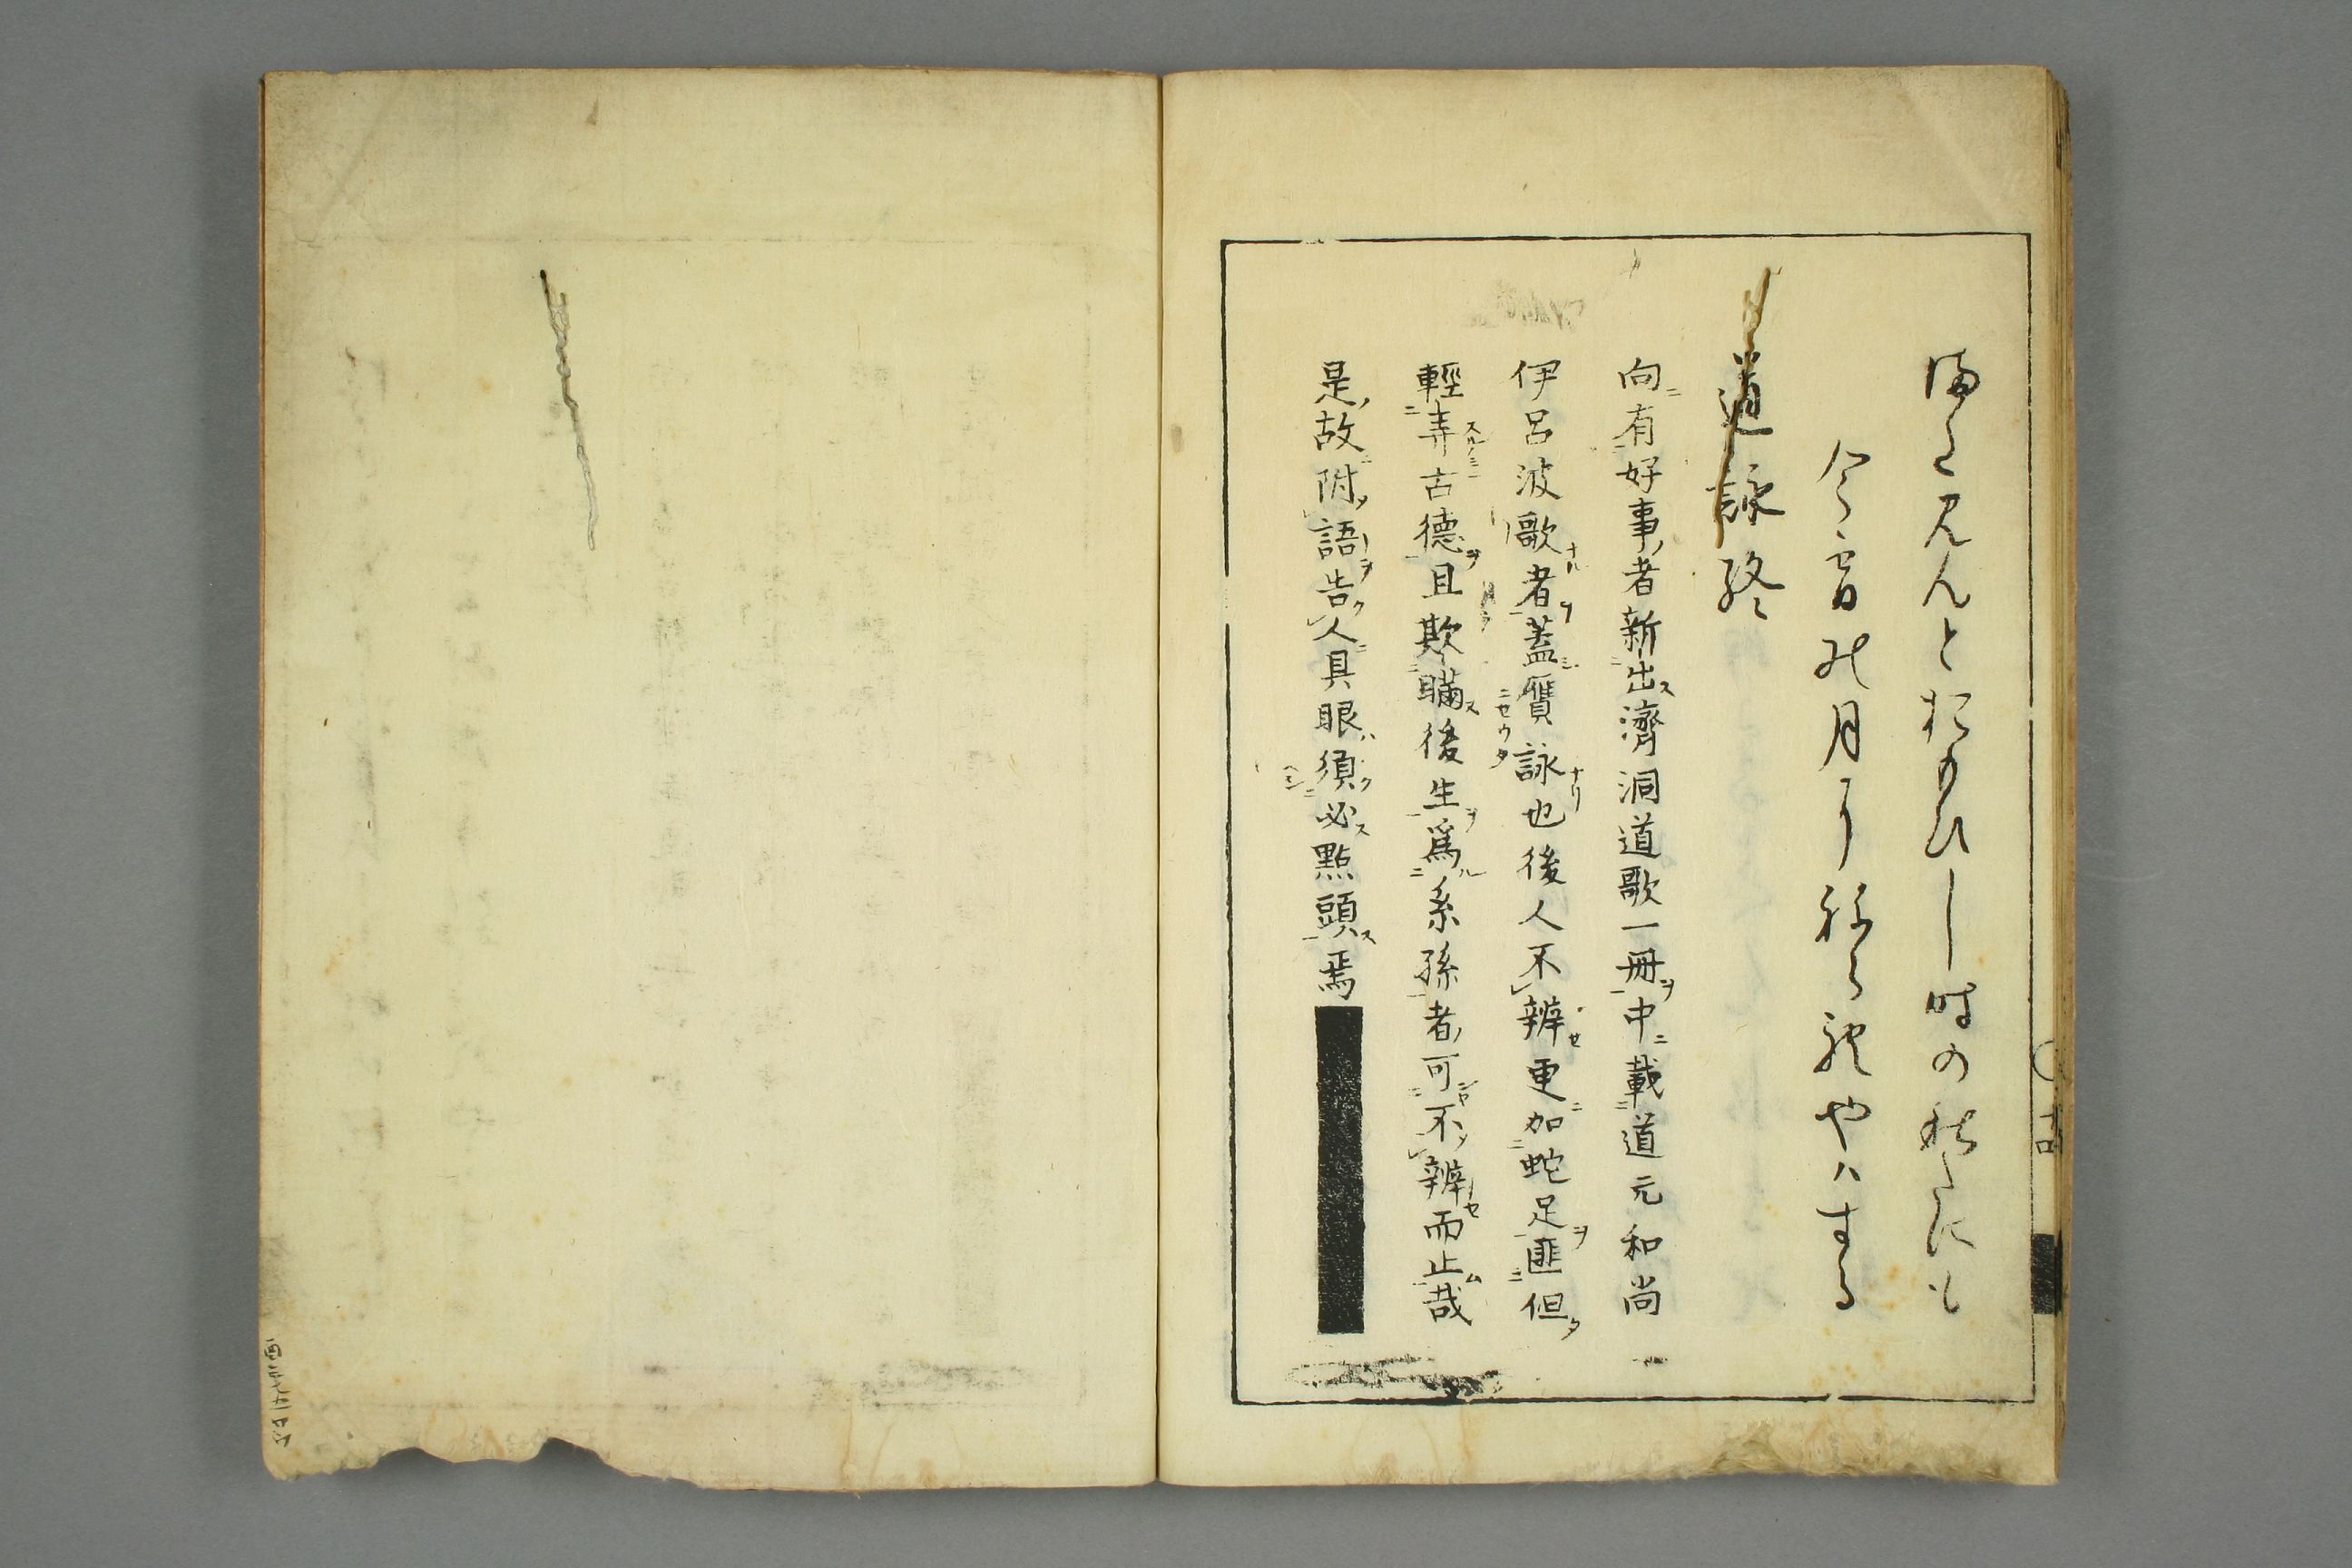 また見んとおもひし時の秋たにも
今宵の月にねられやはする
道詠終
向有好事者新出濟洞道歌一冊中載道元和尚
伊呂波歌者蓋贋詠也後人不辨更加蛇足匪但
輕弄古德且欺瞞後生爲系孫者可不辨而止哉
是故附語告人具眼須必點頭焉